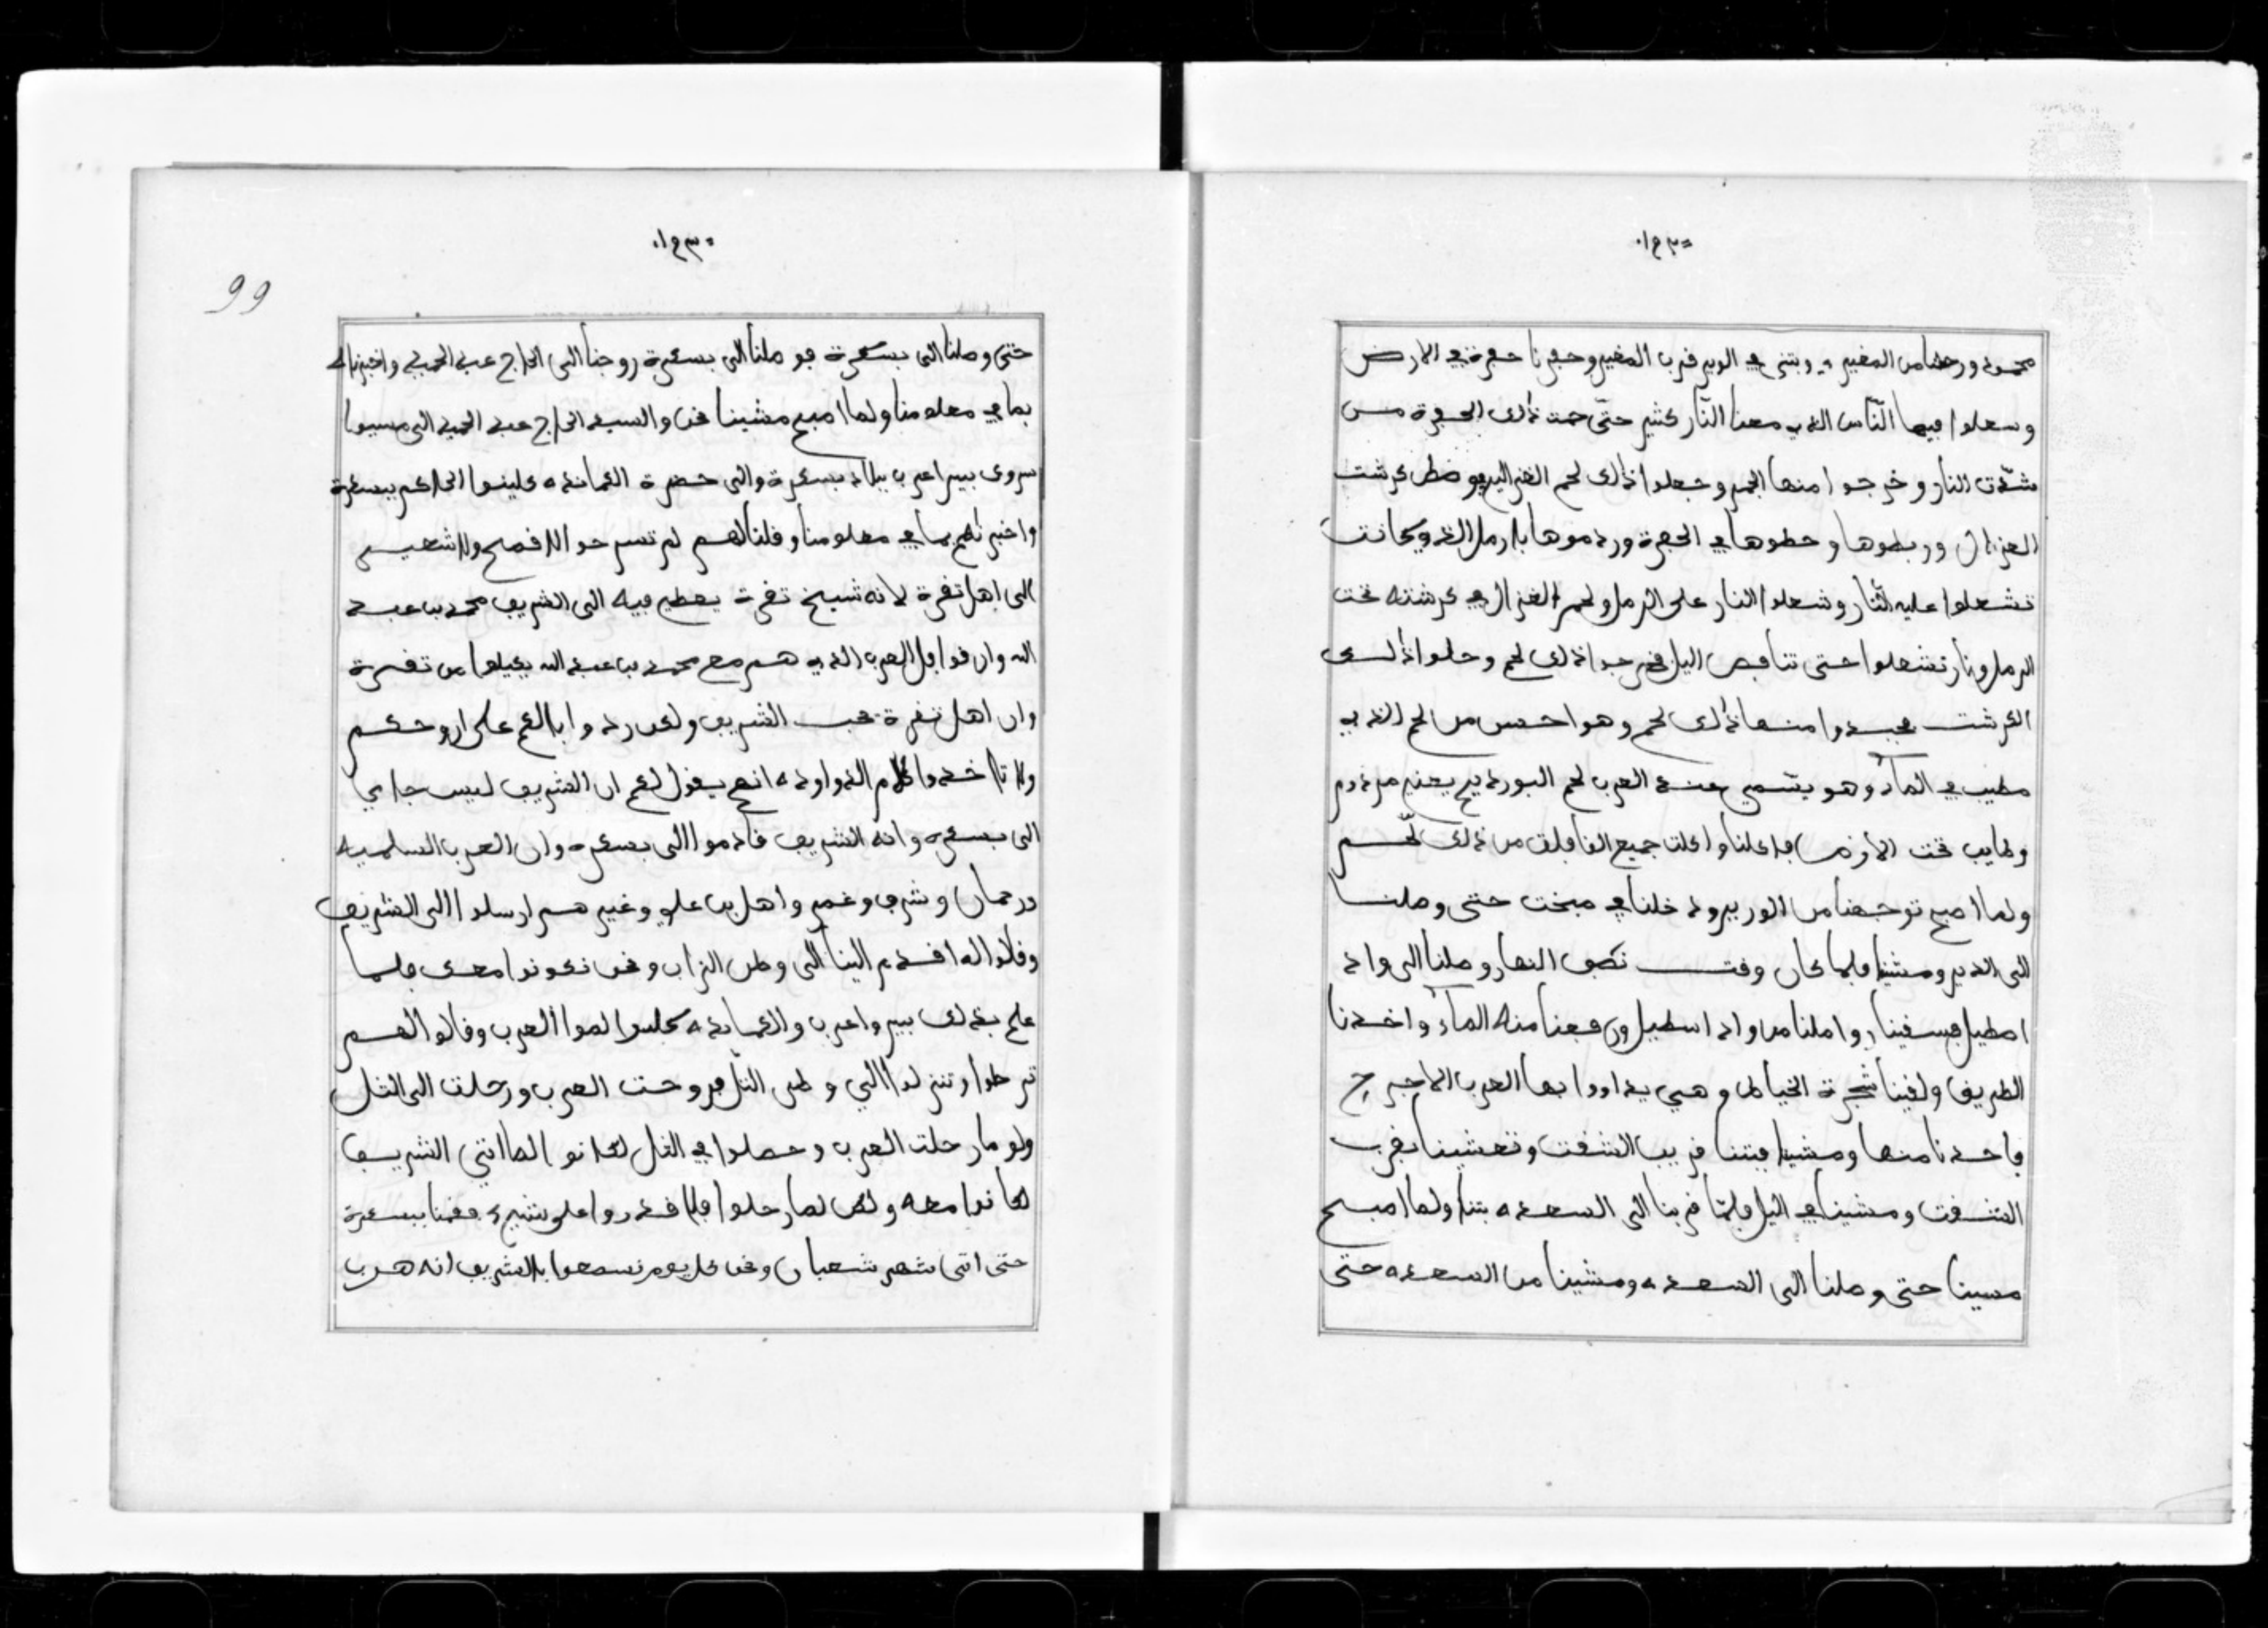 محمود ورحلنا من المغير وبتنا في الوبير فرب المغير وحفرنا حفرة في الارض
وشعلوا فيها النّاس الذي معنا النّار كثير حتّى حمت ذلك الحفرة من
شدّت النار وخرجوا منها الجمر وجعلوا ذلك لحم الغزال في وسط كرشت
الغزال وربطوها وحطوها في الحفرة وردموها بالرمل الذي كانت
تشعلوا عليه النّار وشعلوا النار على الرمل ولحم الغزال في كرشته تحت
الرمل ونار تشعلوا حتى تناصف اليل فخرجوا ذلك لحم وحلوا ذلك
الكرشت فجبدوا منها ذلك لحم وهو احسن من لحم الذي
مطيب في الماء وهو يتسمى عند العرب لحم البورديم يعني مردوم
وطايب تحت الارض فاكلنا واكلت جميع القافلة من ذلك لحم
ولما اصبح توجهنا من الوربير ودخلنا في مبخت حتى وصلنا
الى الدير ومشينا فلما كان وقت نصف النهار وصلنا الى واد
اسطيل فسقينا واملنا من واد اسطيل ورفعنا منه الماء واخدنا
الطريق ولقينا شجرة الخياطا وهي يداووا بها العرب الاجرح
فاخدنا منها ومشينا فبتنا قريب الشقت وتعشينا بقرب
الشقت ومشينا في اليل فلمّا قربنا الى السعده بتنا ولما اصبح
مسينا حتى وصلنا الى السعده ومشينا من السعده حتى
99
حتى وصلنا الى بسكرة فوصلنا الى بسكرة روحنا الى الحاج عبد الحميد واخبرناه
بما في معلومنا ولما اصبح مشينا نحن والسيد الحاج عبد الحميد الى مسيوا
سروى بيراعرب ببلاد بسكرة والى حضرة الكمانده كلينوا الحاكم ببسكرة
واخبرناهم بما في معلومنا وقلنا لهم لم تسرحوا لا قمح ولا شعير
الى اهل تقرة لانه شيخ تقرة يعطي فيه الى الشريف محمد بن عبد
الله وان قوافل العرب الذي هم مع محمد بن عبد الله يكيلوا من تقرة
وان اهل تقرة تحب الشريف ولكن رد وابالكم على اروحكم
ولا تاخدوا كلام الذواوده انهم يقول لكم ان الشريف ليس جاي
الى بسكره وانه الشريف قادموا الى بسكره وان العرب السلميه
ورحمان وشرف وغمر واهل بن علي وغيرهم ارسلوا الى الشريف
وقالوا له اقدم الينا الى وطن الزاب ونحن نكونوا معك فلما
علم بذلك بيرواعرب والكمانده كلينوا لموا العرب وقالوا لهم
ترحلوا وتنزلوا الى وطن التل فروحت العرب ورحلت الى التل
ولو ما رحلت العرب وحصلوا في التل لكانوا لما اتى الشريف
لكانوا معه ولكن لما رحلوا فلا قدروا على شيء فقمنا ببسكرة
حتى اتى شهر شعبان ونحن كل يوم نسمعوا بالشريف انه هرب